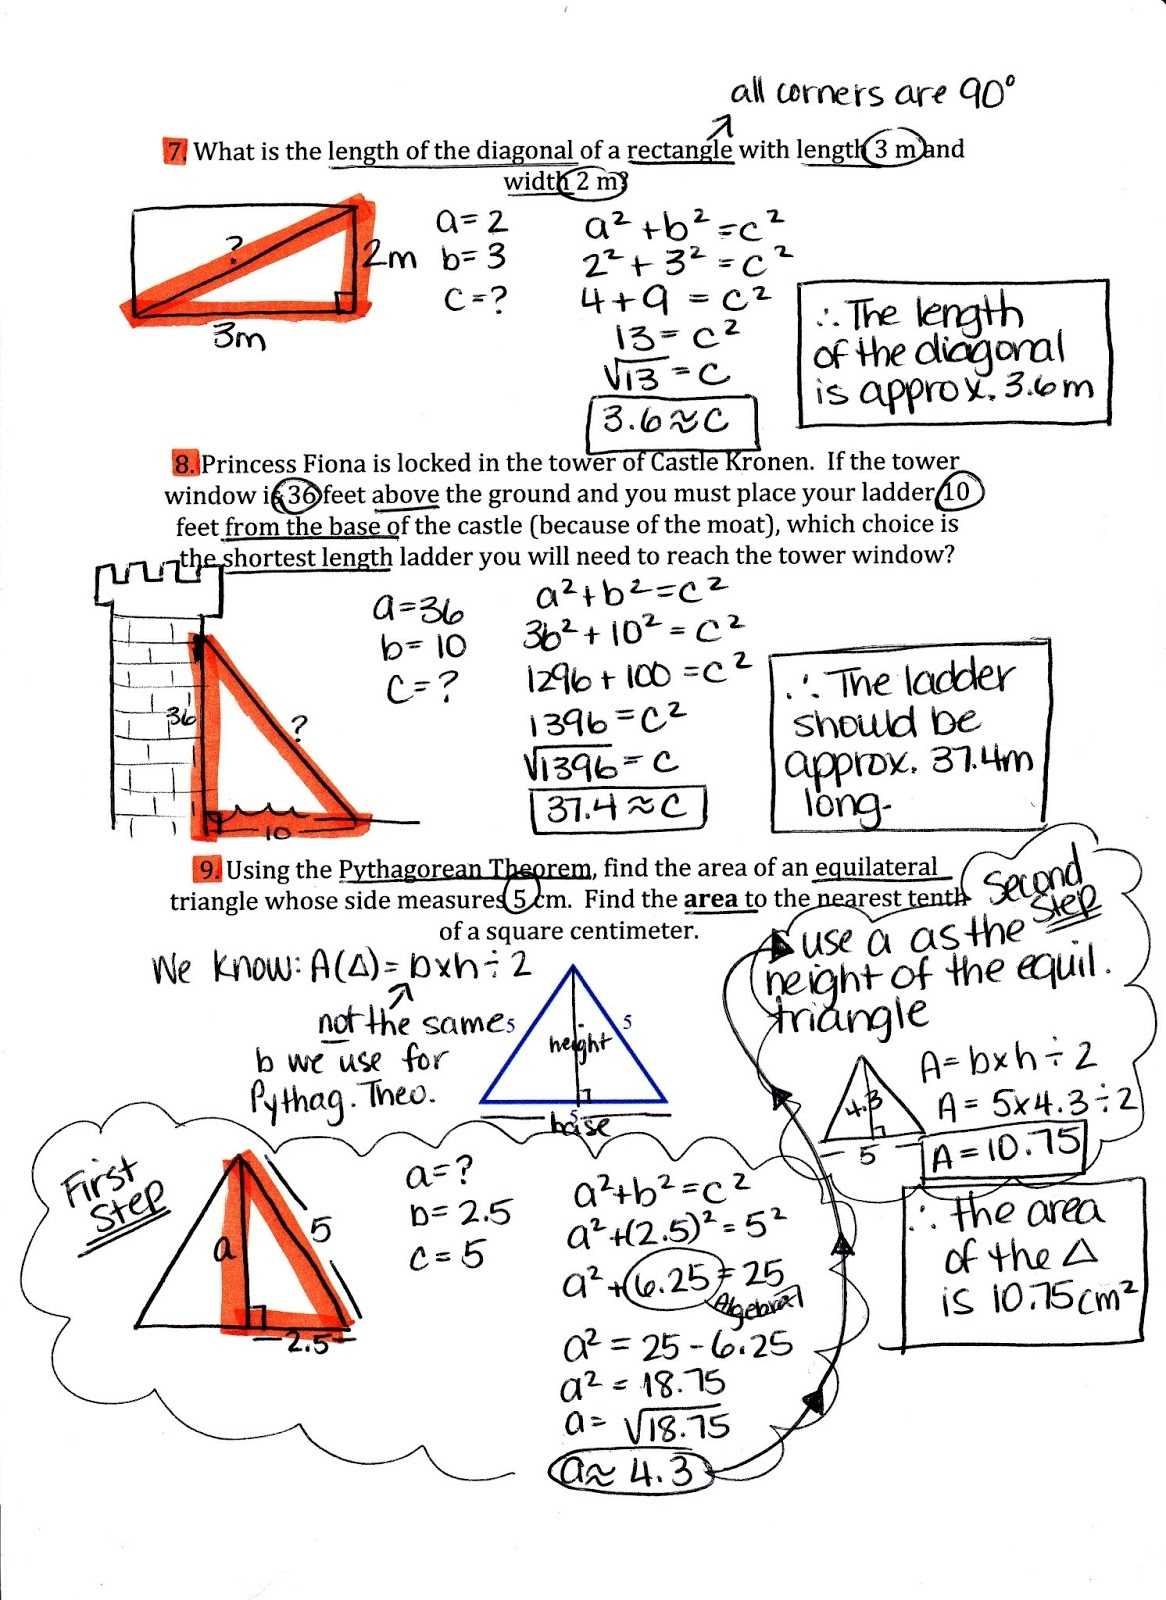 all corners are 90°
7. What is the length of the diagonal of a rectangle with length 3 m and
width 2 m?
?
2m
3m
a = 2
b = 3
c = ?
a² + b² = c²
2² + 3² = c²
4 + 9 = c²
13 = c²
√13 = c
3.6 ≈ c
∴ The length
of the diagonal
is approx. 3.6 m
8. Princess Fiona is locked in the tower of Castle Kronen. If the tower
window is 36 feet above the ground and you must place your ladder 10
feet from the base of the castle (because of the moat), which choice is
the shortest length ladder you will need to reach the tower window?
36
?
10
a = 36
b = 10
c = ?
a² + b² = c²
36² + 10² = c²
1296 + 100 = c²
1396 = c²
√1396 = c
37.4 ≈ c
∴ The ladder
should be
approx. 37.4m
long.
9. Using the Pythagorean Theorem, find the area of an equilateral
triangle whose side measures 5 cm. Find the area to the nearest tenth
of a square centimeter.
We know: A(Δ) = b x h ÷ 2
not the same
b we use for
Pythag. Theo.
5
5
height
5
base
Second
Step
use a as the
height of the equil.
triangle
4.3
5
A = b x h ÷ 2
A = 5 x 4.3 ÷ 2
A = 10.75
∴ the area
of the Δ
is 10.75 cm²
First
Step
a
5
2.5
a = ?
b = 2.5
c = 5
a² + b² = c²
a² + (2.5)² = 5²
a² + 6.25 = 25
Algebra!
a² = 25 - 6.25
a² = 18.75
a = √18.75
a ≈ 4.3